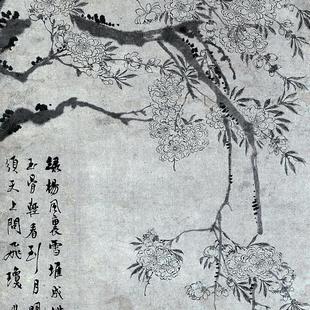 綠楊風裏雪堆成
玉骨輕看到月明
須天上問飛瓊